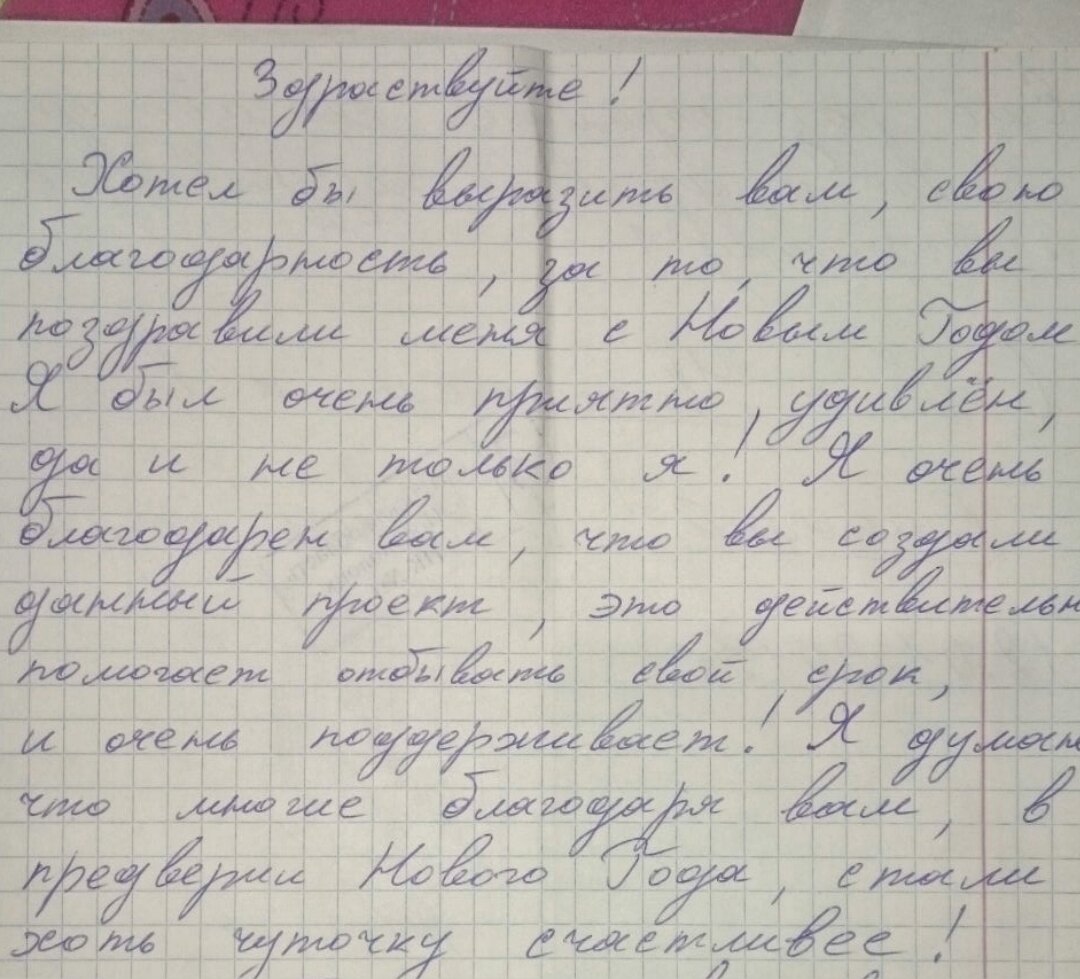 Здраствуйте!
Хотел бы выразить вам, свою
благодарность, за то, что вы
поздравили меня с Новым Годом
Я был очень приятно, удивлён,
да и не только я! Я очень
благодарен вам, что вы создали
данный проект, это действительн
помогает отбывать свой срок,
и очень поддерживает! Я думаю
что многие благодаря вам, в
предверии Нового Года, стали
хоть чуточку счастливее!